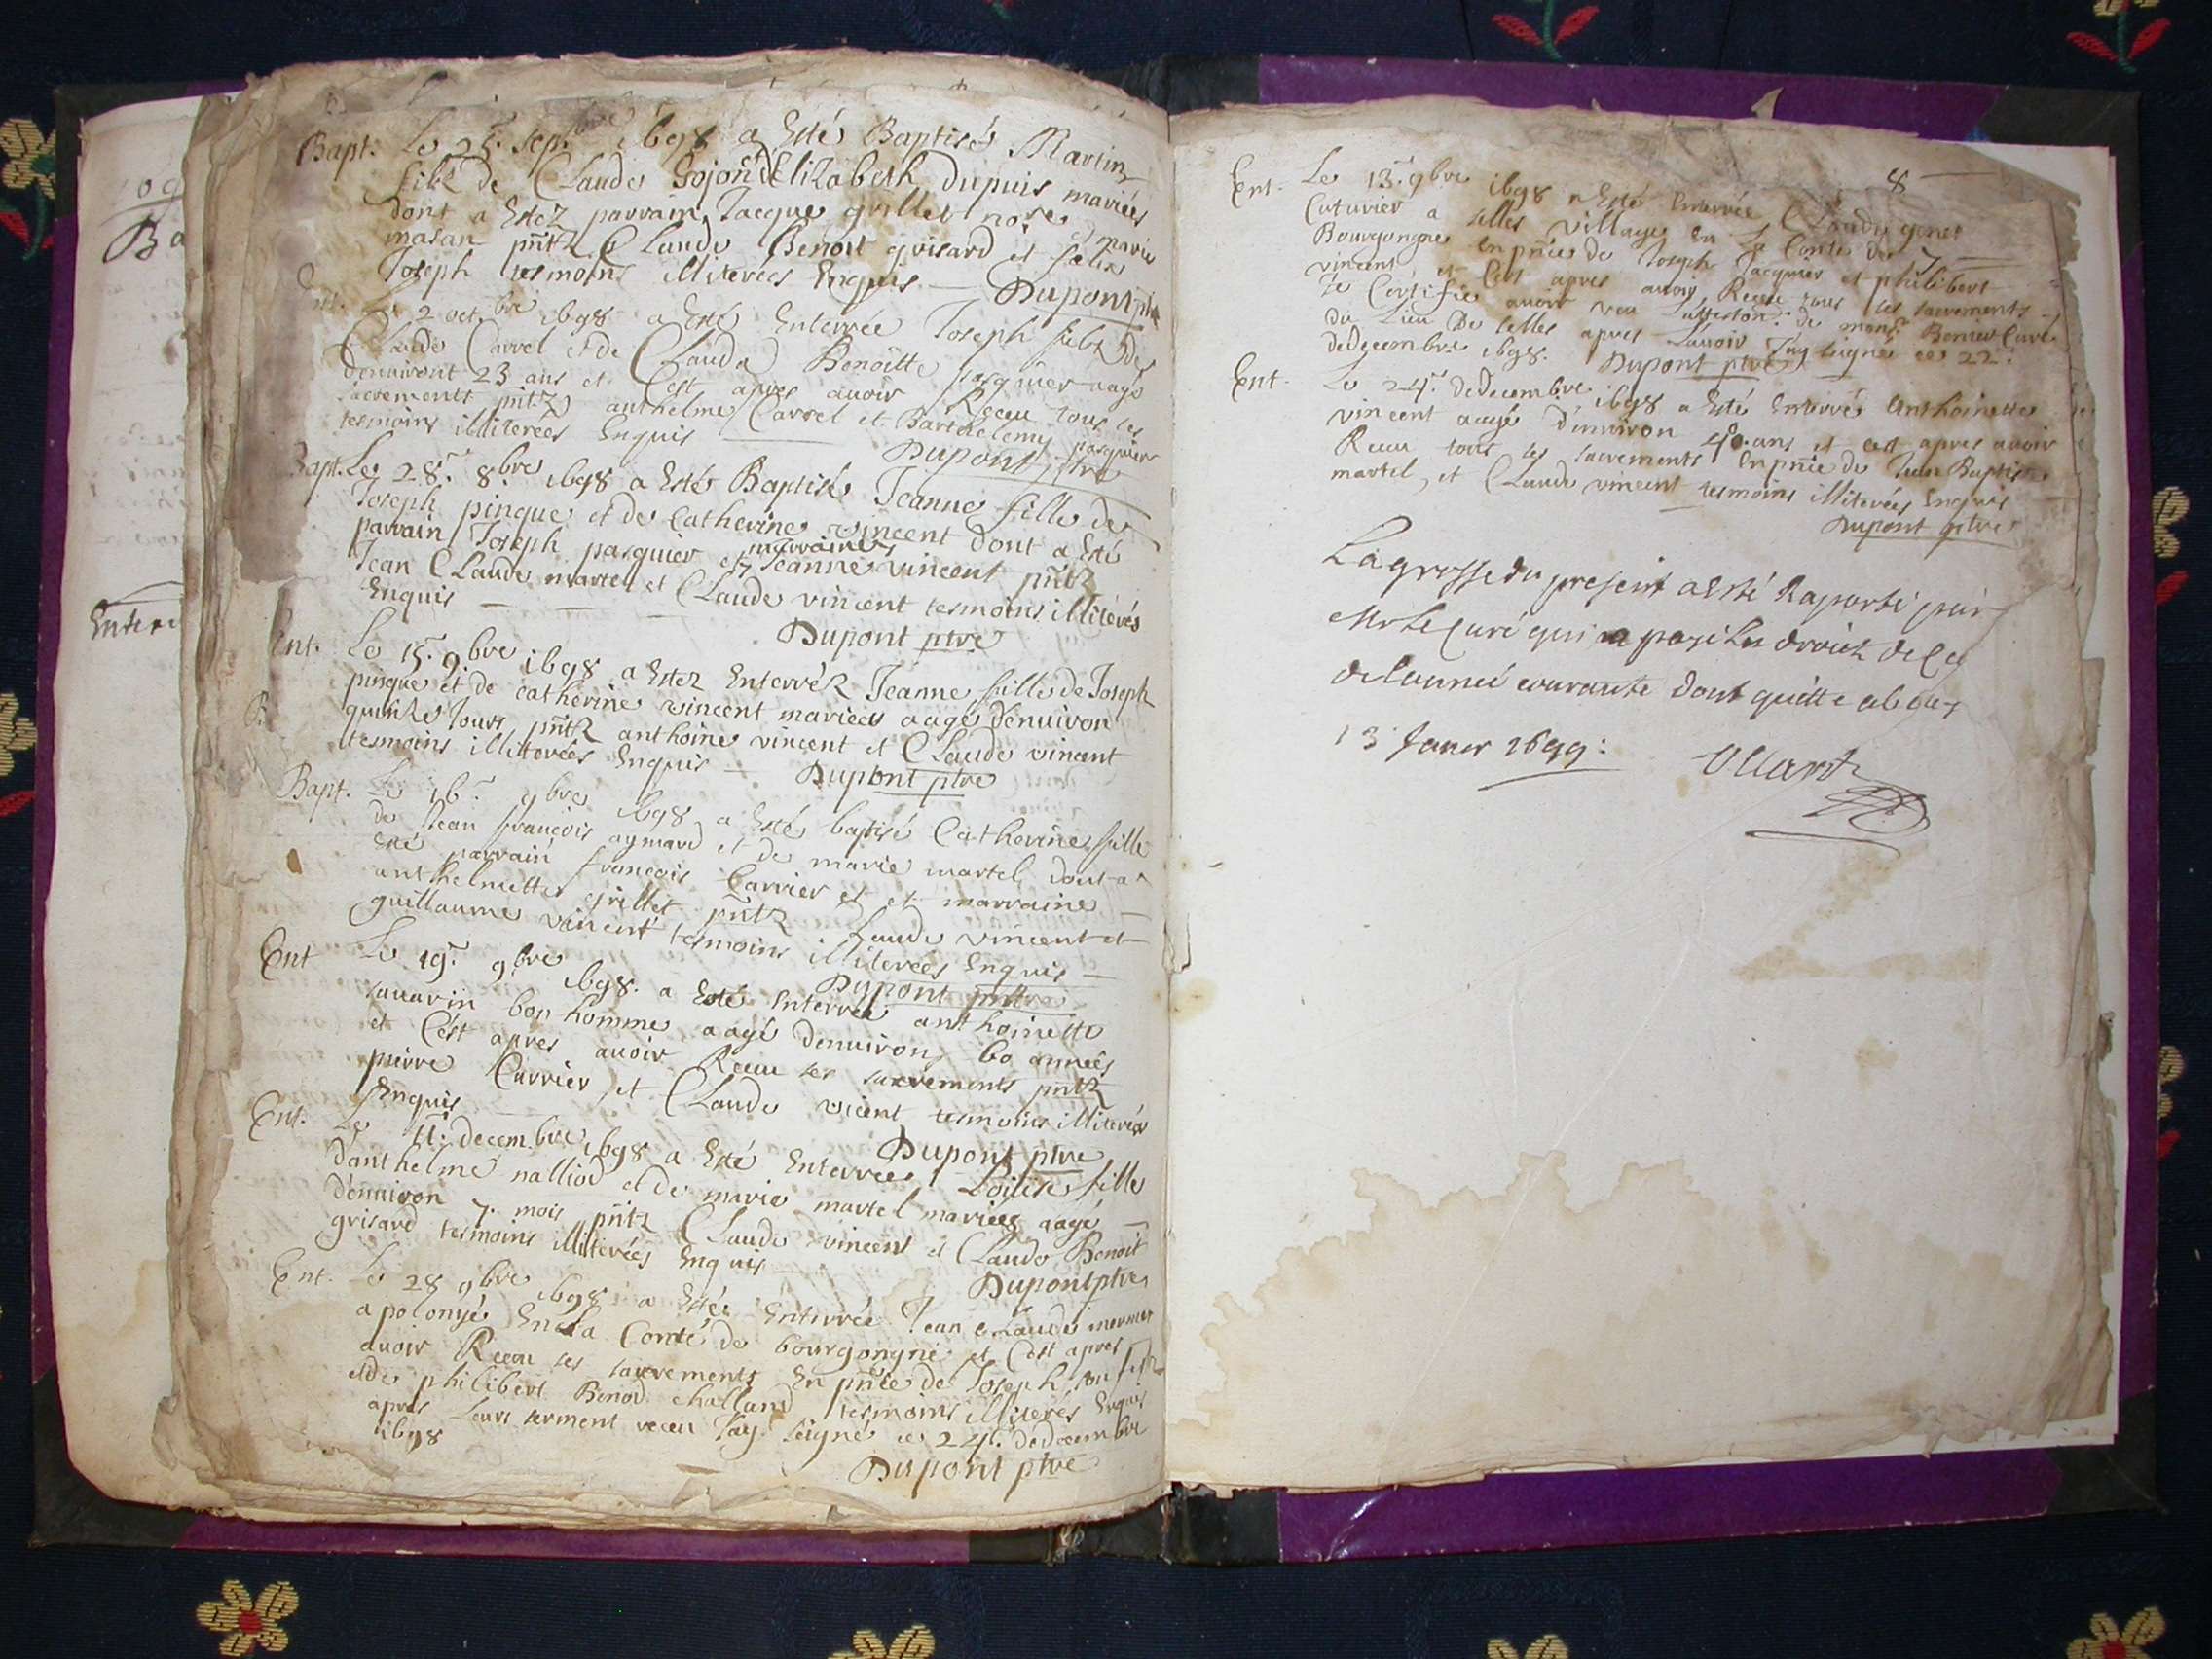 og
Ba
Entere
Bapt. Le 25. sepbre 1698 a Esté Baptisé Martin
filz de Claude Gojon et d'Elizabeth Dupuis mariées
dont a Estez parrain Jacque grillet nore et marie
masan pntz Claude Benoit grisard et felix
Joseph tesmoins illiterées Enquis — Dupont ptre
Ent. Le 2 octobre 1698 a Esté Enterrée Joseph filz de
Claude Carrel et de Clauda Benoitte pasquier aagé
denuiront 23 ans et C'est apres auoir Receu tous les
sacrements pntz anthelme Carrel et Barthelemy pasquier
tesmoins illiterées Enquis — Dupont ptre
Bapt. Le 28. 8bre 1698 a Esté Baptisée Jeanne fille de
Joseph pinque et de Catherine vincent dont a Esté
parrain Joseph pasquier et marraine Jeanne vincent pntz
Jean Claude martel et Claude vincent tesmoins illiterés
Enquis — — — Dupont ptre
Ent. Le 15. 9bre 1698 a Estez Enterréz Jeanne fille de Joseph
pinque et de catherine vincent mariées aagé d'enuiron
quinze Jours pntz anthoine vincent et Claude vincent
tesmoins illiterées Enquis — Dupont ptre
B
Bapt. Le 16. 9bre 1698 a Esté baptisé Catherine fille
de Jean françois aymard et de marie martel dont a
Esté parrain françois Carrier et et marraine —
anthelmette grillet pntz Claude vincent et
guillaume vincent tesmoins illiterées Enquis —
Dupont ptre
Ent Le 19. 9bre 1698. a Esté Enterrée anthoinette
sauarin bon homme aagé denuiron 60 années
et C'est apres auoir Receu ses sacrements pntz
pierre Carrier et Claude vicent tesmoins illiterés
Enquis — Dupont ptre
Ent. Le 11. decembre 1698 a Esté Enterrée Loüise fille
d'anthelme nalliod et de marie martel mariées aagé —
d'enuiron 7. mois pntz Claude vincent et Claude Benoit
grisard tesmoins illiterées Enquis — Dupont ptre
Ent. Le 28 9bre 1698 a Estée Enterrée Jean Claude mermet
a polonyé En la Conté de bourgongne et C'est apres
auoir Receu ses sacrements En pnce de Joseph son filz
et de philibert Benod challand tesmoins illiterés Enquis
apres Leurs serment receu J'ay signé ce 24. de decembre
1698 Dupont ptre
8
Ent. Le 13. 9bre 1698 a Esté Enterrée Claudy genet
Cuturier a selles village En La Conté de
Bourgongne En pnce de Joseph Jacquier et philibert
vincent et C'est apres auoir Receu tous ses sacrements —
Je Certifie auoir veu Latteston. de monsr. Curé
du Lieu De selles apres Lauoir signé ce 22.
de decembre 1698. Dupont ptre
Ent. Le 24. de decembre 1698 a Esté Enterrée Anthoinette
vincent aagé d'enuiron 40. ans et cest apres auoir
Receu tous ses sacrements En pnce de Jean Baptiste
martel, et Claude vincent tesmoins illiterées Enquis
Dupont ptre
La grosse du present a Esté Raporté par
Mr Le Curé qui a payé Les droictz
de l'année courante dont quitte
13 Janer 1699: